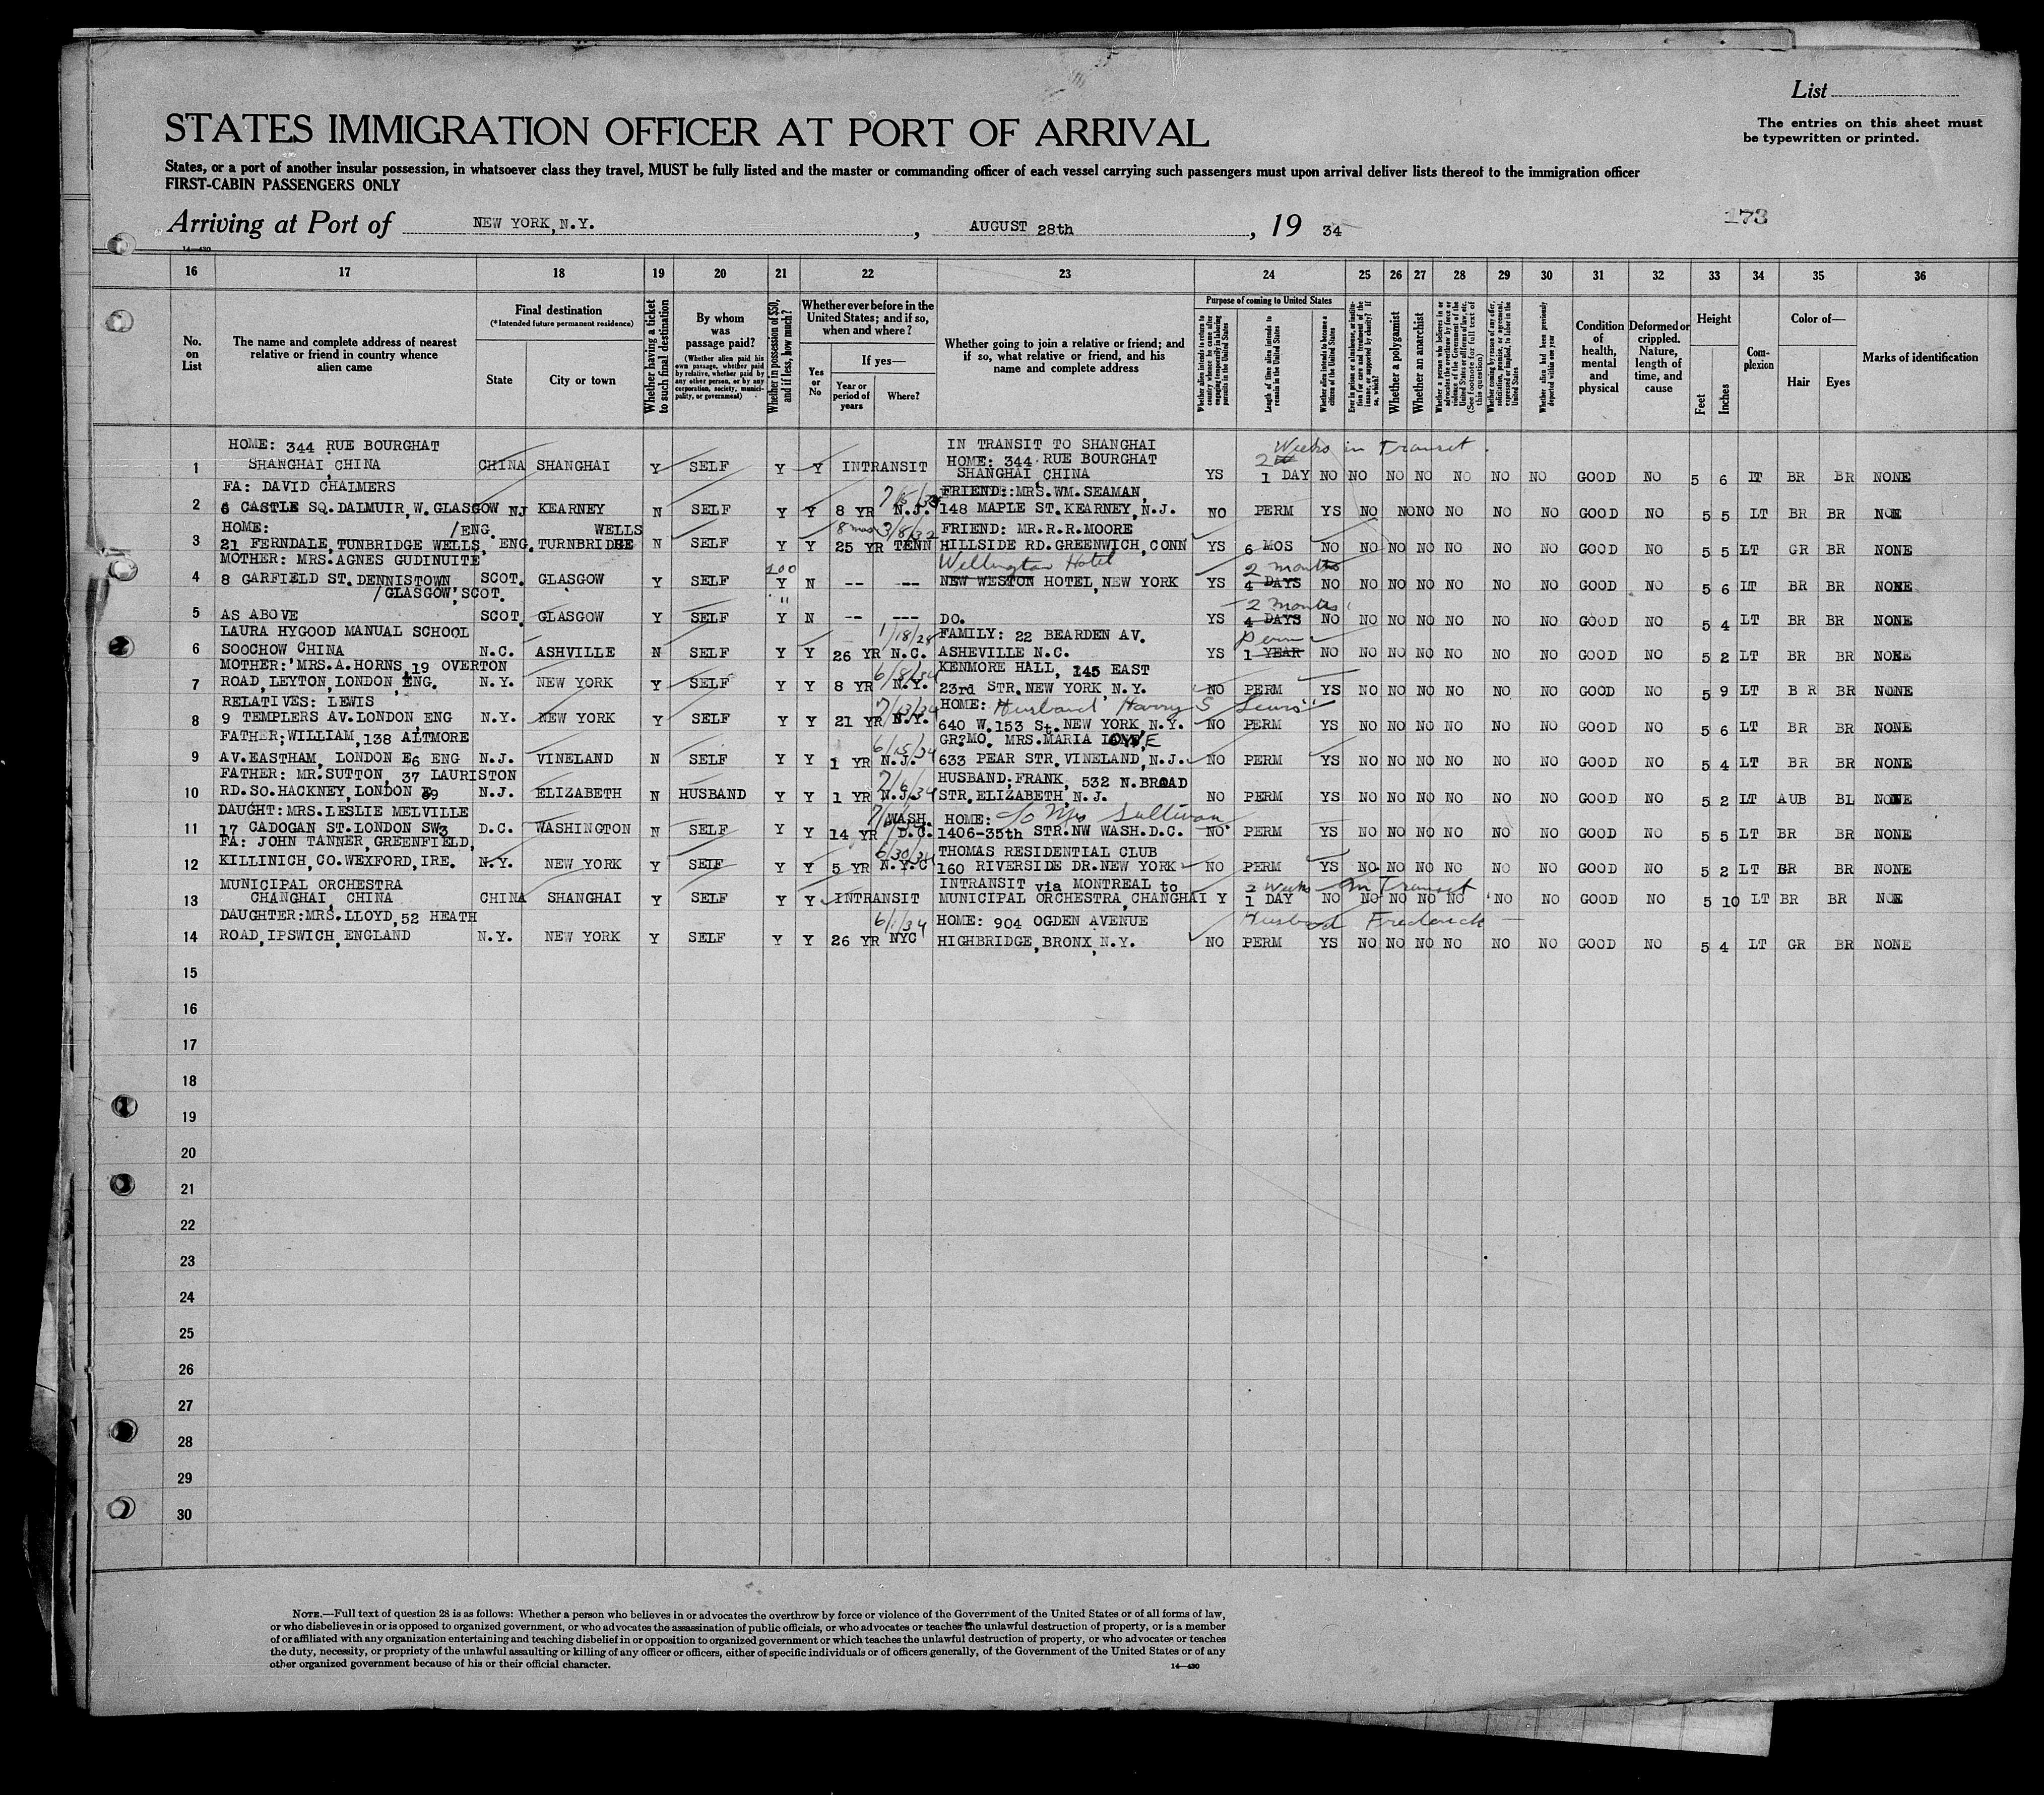 List
STATES IMMIGRATION OFFICER AT PORT OF ARRIVAL
The entries on this sheet must
be typewritten or printed.
States, or a port of another insular possession, in whatsoever class they travel, MUST be fully listed and the master or commanding officer of each vessel carrying such passengers must upon arrival deliver lists thereof to the immigration officer
FIRST-CABIN PASSENGERS ONLY
Arriving at Port of NEW YORK, N.Y. , AUGUST 28th , 19 34
173
14—430
16 17 18 19 20 21 22 23 24 25 26 27 28 29 30 31 32 33 34 35 36
No. on List
The name and complete address of nearest relative or friend in country whence alien came
Final destination
(*Intended future permanent residence)
State
City or town
Whether having a ticket to such final destination
By whom was passage paid?
(Whether alien paid his own passage, whether paid by relative, whether paid by any other person, or by any corporation, society, municipality, or government)
Whether in possession of $50, and if less, how much?
Whether ever before in the United States; and if so, when and where?
Yes or No
If yes—
Year or period of years
Where?
Whether going to join a relative or friend; and if so, what relative or friend, and his name and complete address
Purpose of coming to United States
Whether alien intends to return to country whence he came after engaging temporarily in laboring pursuits in the United States
Length of time alien intends to remain in the United States
Whether alien intends to become a citizen of the United States
Ever in prison or almshouse, or institution for care and treatment of the insane, or supported by charity? If so, which?
Whether a polygamist
Whether an anarchist
Whether a person who believes in or advocates the overthrow by force or violence of the Government of the United States or all forms of law, etc. (See footnote for full text of this question)
Whether coming by reason of any offer, solicitation, promise, or agreement, expressed or implied, to labor in the United States
Whether alien had been previously deported within one year
Condition of health, mental and physical
Deformed or crippled. Nature, length of time, and cause
Height
Feet
Inches
Complexion
Color of—
Hair
Eyes
Marks of identification
HOME: 344 RUE BOURGHAT IN TRANSIT TO SHANGHAI Weeks in Transit.
1 SHANGHAI, CHINA CHINA SHANGHAI Y SELF Y Y INTRANSIT HOME: 344 RUE BOURGHAT 2
SHANGHAI, CHINA YS 1 DAY NO NO NO NO NO NO NO GOOD NO 5 6 LT BR BR NONE
FA: DAVID CHALMERS FRIEND: MRS. WM. SEAMAN,
2 6 CASTLE SQ. DALMUIR, W. GLASGOW NJ KEARNEY N SELF Y Y 8 YR N.J. 148 MAPLE ST. KEARNEY, N.J. NO PERM YS NO NO NO NO NO NO GOOD NO 5 5 LT BR BR
HOME: /ENG. WELLS 8 mos 3/8/32 FRIEND: MR. R.R. MOORE
3 21 FERNDALE, TUNBRIDGE WELLS, ENG. TURNBRIDGE N SELF Y Y 25 YR TENN HILLSIDE RD. GREENWICH, CONN YS 6 MOS NO NO NO NO NO NO NO GOOD NO 5 5 LT GR BR NONE
MOTHER: MRS. AGNES GUDINUITE 100 Wellington Hotel 2 months
4 8 GARFIELD ST. DENNISTOWN SCOT. GLASGOW Y SELF Y N -- --- NEW WESTON HOTEL, NEW YORK YS 4 DAYS NO NO NO NO NO NO NO GOOD NO 5 6 LT BR BR NONE
/GLASGOW, SCOT.
" 2 months
5 AS ABOVE SCOT. GLASGOW Y SELF Y N -- --- DO. YS 4 DAYS NO NO NO NO NO NO NO GOOD NO 5 4 LT BR BR NONE
LAURA HYGOOD MANUAL SCHOOL 1/18/28 FAMILY: 22 BEARDEN AV. Perm
6 SOOCHOW CHINA N.C. ASHVILLE N SELF Y Y 26 YR N.C. ASHEVILLE N.C. YS 1 YEAR NO NO NO NO NO NO NO GOOD NO 5 2 LT BR BR NONE
MOTHER: MRS. A. HORNS, 19 OVERTON 6/8/34 KENMORE HALL, 145 EAST
7 ROAD, LEYTON, LONDON, ENG. N.Y. NEW YORK Y SELF Y Y 8 YR N.Y. 23rd STR. NEW YORK, N.Y. NO PERM YS NO NO NO NO NO NO GOOD NO 5 9 LT BR BR NONE
RELATIVES: LEWIS 7/13/34 HOME: Husband Harry S Lewis
8 9 TEMPLERS AV. LONDON ENG N.Y. NEW YORK Y SELF Y Y 21 YR N.Y. 640 W. 153 St. NEW YORK N.Y. NO PERM YS NO NO NO NO NO NO GOOD NO 5 6 LT BR BR NONE
FATHER; WILLIAM, 138 ALTMORE 6/15/34 GR. MO. MRS. MARIA
9 AV. EASTHAM, LONDON E6 ENG N.J. VINELAND N SELF Y Y 1 YR N.J. 633 PEAR STR. VINELAND, N.J. NO PERM YS NO NO NO NO NO NO GOOD NO 5 4 LT BR BR NONE
FATHER: MR. SUTTON, 37 LAURISTON HUSBAND; FRANK, 532 N. BROAD
10 RD. SO. HACKNEY, LONDON E9 N.J. ELIZABETH N HUSBAND Y Y 1 YR N.J. STR. ELIZABETH, N.J. NO PERM YS NO NO NO NO NO NO GOOD NO 5 2 LT AUB BL NONE
DAUGHT: MRS. LESLIE MELVILLE WASH. HOME: c/o Mrs Sullivan
11 17 CADOGAN ST. LONDON SW3 D.C. WASHINGTON N SELF Y Y 14 YR D.C. 1406-35th STR. NW WASH. D.C. NO PERM YS NO NO NO NO NO NO GOOD NO 5 5 LT BR BR NONE
FA: JOHN TANNER, GREENFIELD, 6/30/34 THOMAS RESIDENTIAL CLUB
12 KILLINICH, CO. WEXFORD, IRE. N.Y. NEW YORK Y SELF Y Y 5 YR N.Y.C 160 RIVERSIDE DR. NEW YORK NO PERM YS NO NO NO NO NO NO GOOD NO 5 2 LT BR BR NONE
MUNICIPAL ORCHESTRA INTRANSIT via MONTREAL to 2 Weeks In Transit
13 CHANGHAI, CHINA CHINA SHANGHAI Y SELF Y Y INTRANSIT MUNICIPAL ORCHESTRA, CHANGHAI Y 1 DAY NO NO NO NO NO NO NO GOOD NO 5 10 LT BR BR
DAUGHTER: MRS. LLOYD, 52 HEATH 6/1/34 HOME: 904 OGDEN AVENUE Husband Frederick
14 ROAD, IPSWICH, ENGLAND N.Y. NEW YORK Y SELF Y Y 26 YR NYC HIGHBRIDGE, BRONX, N.Y. NO PERM YS NO NO NO NO NO NO GOOD NO 5 4 LT GR BR NONE
15
16
17
18
19
20
21
22
23
24
25
26
27
28
29
30
NOTE.—Full text of question 28 is as follows: Whether a person who believes in or advocates the overthrow by force or violence of the Government of the United States or of all forms of law,
or who disbelieves in or is opposed to organized government, or who advocates the assassination of public officials, or who advocates or teaches the unlawful destruction of property, or is a member
of or affiliated with any organization entertaining and teaching disbelief in or opposition to organized government or which teaches the unlawful destruction of property, or who advocates or teaches
the duty, necessity, or propriety of the unlawful assaulting or killing of any officer or officers, either of specific individuals or of officers generally, of the Government of the United States or of any
other organized government because of his or their official character.
14—430